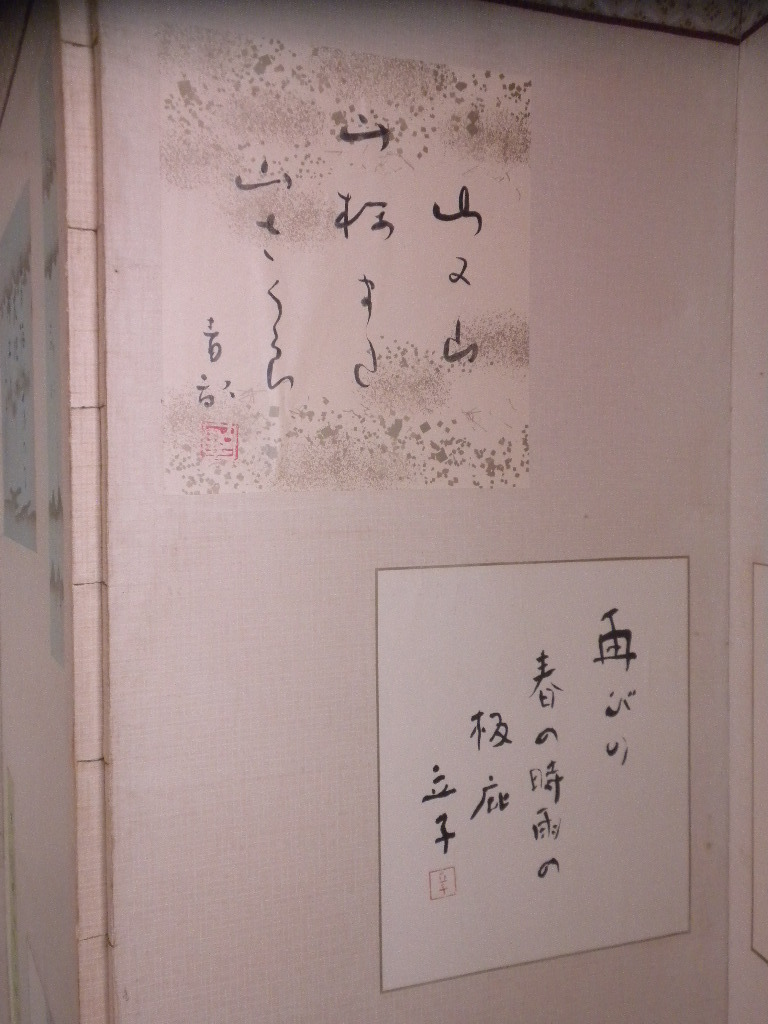 山又山
山桜又
山さくら
青畝
再びの
春の時雨の
板庇
立子